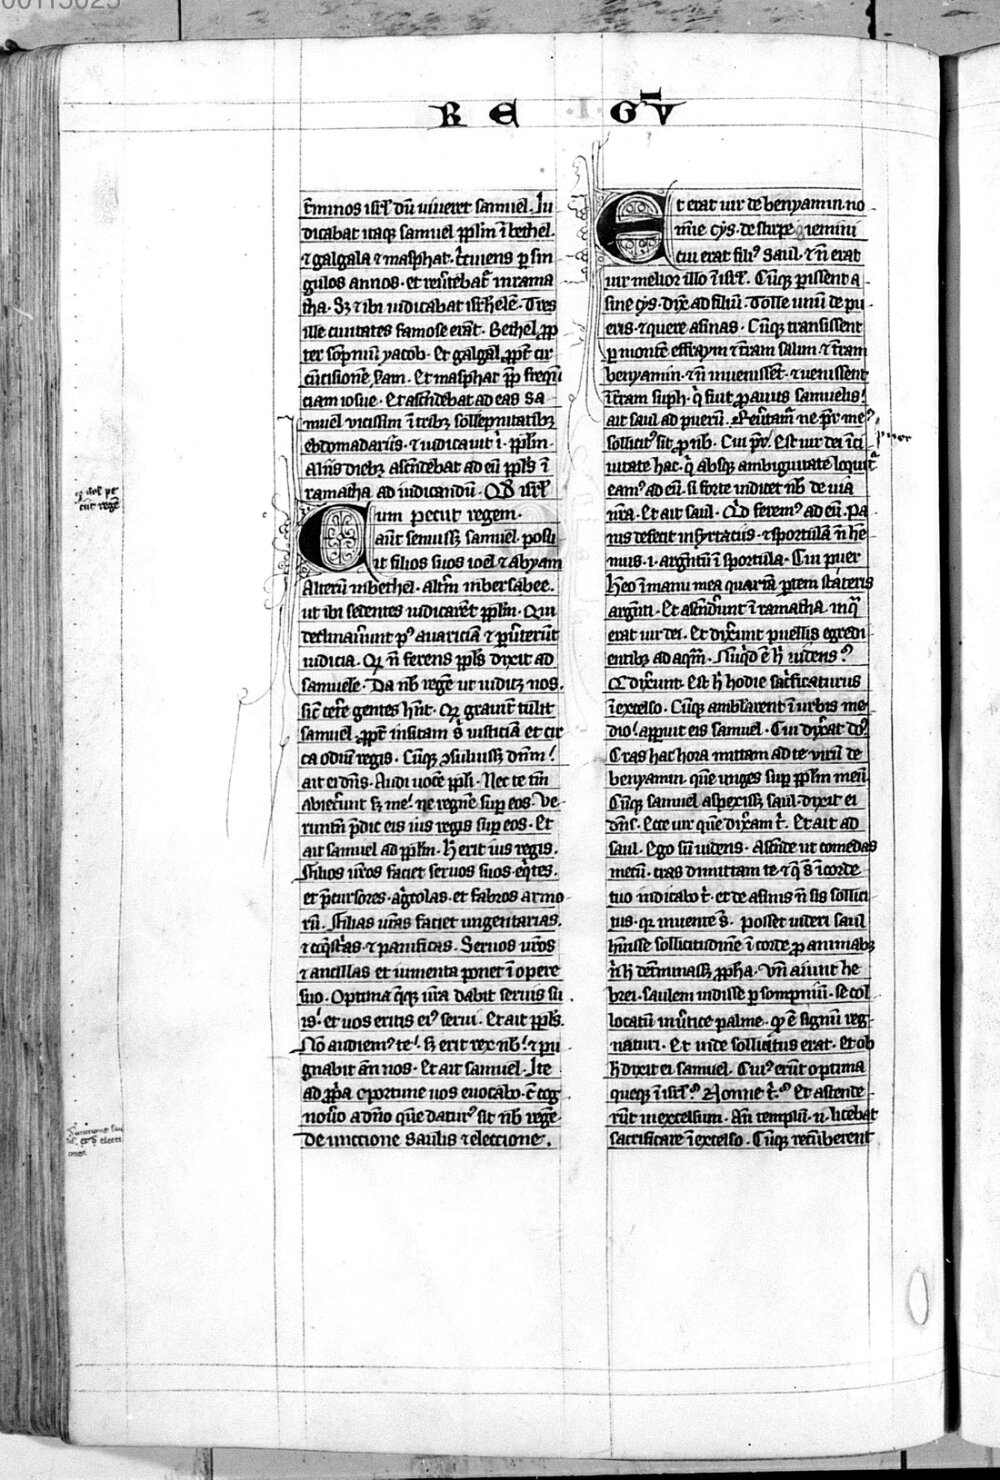 00115025
R E G V I
t̅minos isrl̅ dū uiueret samuel. Iu
dicabat itaq̢ samuel ppl̅m ī bethel.
⁊ galgala ⁊ masphat. c̅cuiens ꝑ sin
gulos annos. et reūtebat᷑ in rama
tha. Sꝫ ⁊ ibi iudicabat isrl̅helē. Tres
ille ciuitates famose erāt. Bethel ꝓp
ter sōpniū yacob. Et galgal̅ ꝓpt̅ cir
cūcisionē
ciam iosue. Et ascēdebat ad eas sa
muel uicissim ī tribꝫ sollēpnitatibꝫ
ebdomadariis. ⁊ iudicauit ī. ppl̅m.
Aliis diebꝫ ascēdebat ad eū ppl̅s ī
ramatha ad iudicandū. Qd̅ isrl̅
um peciit regem.
Cū aūt senuissꝫ samuel. posu
it filios suos ioel ⁊ abyam
Alterū in bethel. alt̅m in bersabee.
ut ibi sedentes iudicarēt ppl̅m. Qui
declinauer̅unt pꝰ auariciā ⁊ ꝑu̅terūt
iudicia. Qꝛ n̄ ferens ppl̅s dixit ad
samuele. Da nb̅ regē ut iudicꝫ nos.
sic̄ cet̅e gentes hn̅t. Qꝛ grauit̅ tulit
samuel. ꝓpt̅ insitam s̅ iusticiā et cir
ca odiū regis. Cūq̢ ꝯsuluissꝫ dn̅m.
ait ei dn̅s. Audi uocē ppl̅i. Nec te tm̅
abiecer̅unt sꝫ me. ne regnē suꝑ eos. Ve
runtn̅ p̅dic eis ius regis suꝑ eos. Et
ait samuel ad ppl̅m. H̅ erit ius regis.
Filios ur̅os faciet seruos suos. eq̅tes.
et p̅cursores. ag̅colas. et fabros armo
rū. Filias ur̅as faciet ungentarias.
⁊ coq̅stas ⁊ panificas. Seruos ur̅os
⁊ ancillas et iumenta ponet ī opere
suo. Optima q̅q̢ ur̅a dabit seruis su
is. et uos eritis eiꝰ serui. Et ait ppl̅s.
Nō audiemꝰ te. sꝫ erit rex nb̅. ⁊ pu
gnabit an̅ nos. Et ait samuel. Ite
ad ꝓp̅a oportune uos euocabo. c̄ cog
nouo a dn̅o quē daturꝰ sit nb̅ regē.
De unccione saulis ⁊ eleccione.
Et erat uir de benyamin. no
mīe cys. de stirpe iemini
cui erat filiꝰ saul. ⁊ n̄ erat
uir melior illo ī isrl̅. Cūq̢ ꝑissent a
sine cys. dix̅ ad filiū. Tolle unū de pu
eris. ⁊ quere asinas. Cūq̢ transissent
ꝑ montē effraym ⁊ tr̅am salim. ⁊ tr̅am
benyamin. ⁊ n̄ inuenissēt. ⁊ uenissent
ī tr̅am suph. q̅ fuit ꝓauus samuelis.
ait saul ad puerū. Reu̅tam̅ ne p̅r meꝰ
sollicitꝰ sit ꝓ nb̅. Cui pu̅r. Est uir dei ī ci
uitate hac. q̅ absq̢ ambiguitate loquit᷑.
eamꝰ ad eū. si forte indicet nb̅ de uia
nr̅a. Et ait saul. Qd̅ feremꝰ ad eū. Pa
nis defecit in syrtaciis. ⁊ sportulā n̄ he
mus. i. arge̅tū ī sportula. Cui puer
Heo ī manu mea quartā ꝑtem stateris
arge̅ti. Et ascender̅unt ī ramatha. in q̅
erat uir dei. Et dixer̅unt puellis egredi
entibꝫ ad aqm̅. Nūqd̅ ē h̅ uidens?
Q dixer̅unt. Est h̅ hodie sac̅ficaturus
ī excelso. Cūq̢ amblarent ī urbis me
dio. appuit eis samuel. Cui dixe̅at dn̅s.
Cras hac hora mittam ad te uirū de
benyamin. quē unges suꝑ ppl̅m meū.
Cūq̢ samuel aspexissꝫ saul. dixit ei
dn̅s. Ecce uir quē dixe̅am t̅. Et ait ad
saul. Ego sū uidens. Ascēde ut comedas
mecū. cras dimittam te. ⁊ q̅ s̅ ī corde
tuo indicabo t̅. et de asinis n̄ sis sollici
tus. qꝛ inuente s̅. Posset uideri saul
hu̅isse sollicitudinē ī corde ꝓ animabꝫ
n̄ h̅ det̅minassꝫ ꝓpha. Vn̅ aiunt he
brei. saulem uidisse ꝑ sompniū. se col
locatū in u̅tice palme. qd̅ ē signū reg
naturi. Et inde sollicitus erat. Et ob
h̅ dixit ei samuel. Cuiꝰ erūt optima
queq̢ ī isrl̅? Nonne t̅.? Et ascende
rūt in excelsum. An̅ templū. n̄. licebat
sacrificare ī excelso. Cūq̢ recūberent
puer